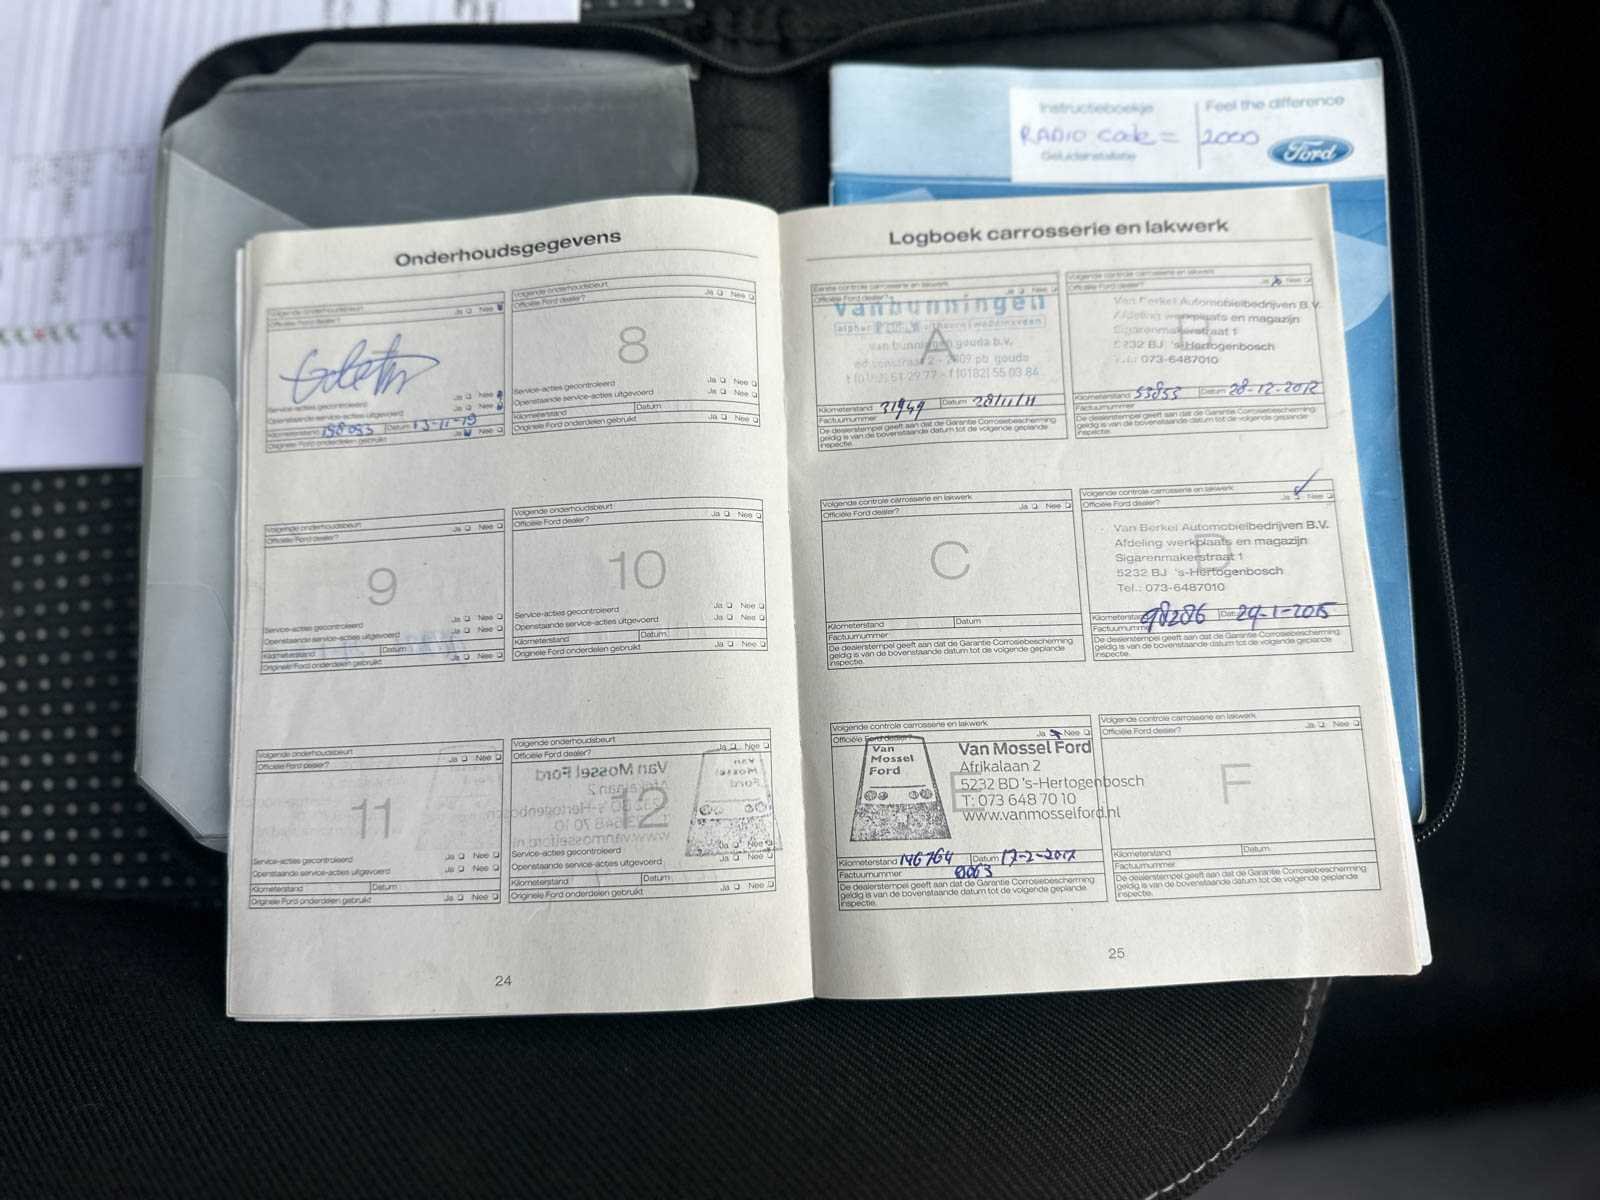 Instructieboekje
Feel the difference
RADIO Code = 2000
Geluidsinstallatie
Ford
Onderhoudsgegevens
Volgende onderhoudsbeurt
Officiële Ford dealer? Ja Nee
Service-acties gecontroleerd Ja Nee
Openstaande service-acties uitgevoerd Ja Nee
Kilometerstand Datum 13-11-19
Originele Ford onderdelen gebruikt Ja Nee
Volgende onderhoudsbeurt
Officiële Ford dealer? Ja Nee
8
Service-acties gecontroleerd Ja Nee
Openstaande service-acties uitgevoerd Ja Nee
Kilometerstand Datum
Originele Ford onderdelen gebruikt Ja Nee
Volgende onderhoudsbeurt
Officiële Ford dealer? Ja Nee
9
Service-acties gecontroleerd Ja Nee
Openstaande service-acties uitgevoerd Ja Nee
Kilometerstand Datum
Originele Ford onderdelen gebruikt Ja Nee
Volgende onderhoudsbeurt
Officiële Ford dealer? Ja Nee
10
Service-acties gecontroleerd Ja Nee
Openstaande service-acties uitgevoerd Ja Nee
Kilometerstand Datum
Originele Ford onderdelen gebruikt Ja Nee
Volgende onderhoudsbeurt
Officiële Ford dealer? Ja Nee
11
Service-acties gecontroleerd Ja Nee
Openstaande service-acties uitgevoerd Ja Nee
Kilometerstand Datum
Originele Ford onderdelen gebruikt Ja Nee
Volgende onderhoudsbeurt
Officiële Ford dealer? Ja Nee
12
Service-acties gecontroleerd Ja Nee
Openstaande service-acties uitgevoerd Ja Nee
Kilometerstand Datum
Originele Ford onderdelen gebruikt Ja Nee
24
Logboek carrosserie en lakwerk
Eerste controle carrosserie en lakwerk
Officiële Ford dealer? Ja Nee
A
vanbunningen
van bunningen gouda b.v.
edisonstraat 2 - 2809 pb gouda
t (0182) 51 29 77 - f (0182) 55 03 86
Kilometerstand 31949 Datum 28/11/11
Factuurnummer
De dealerstempel geeft aan dat de Garantie Corrosiebescherming
geldig is van de bovenstaande datum tot de volgende geplande
inspectie.
Volgende controle carrosserie en lakwerk
Officiële Ford dealer? Ja Nee
Van Berkel Automobielbedrijven B.V.
Afdeling werkplaats en magazijn
Sigarenmakerstraat 1
5232 BJ 's-Hertogenbosch
Tel.: 073-6487010
Kilometerstand 53853 Datum 28-12-2012
Factuurnummer
De dealerstempel geeft aan dat de Garantie Corrosiebescherming
geldig is van de bovenstaande datum tot de volgende geplande
inspectie.
Volgende controle carrosserie en lakwerk
Officiële Ford dealer? Ja Nee
C
Kilometerstand Datum
Factuurnummer
De dealerstempel geeft aan dat de Garantie Corrosiebescherming
geldig is van de bovenstaande datum tot de volgende geplande
inspectie.
Volgende controle carrosserie en lakwerk
Officiële Ford dealer? Ja Nee
D
Van Berkel Automobielbedrijven B.V.
Afdeling werkplaats en magazijn
Sigarenmakerstraat 1
5232 BJ 's-Hertogenbosch
Tel.: 073-6487010
Kilometerstand 98286 Datum 29-1-2015
Factuurnummer
De dealerstempel geeft aan dat de Garantie Corrosiebescherming
geldig is van de bovenstaande datum tot de volgende geplande
inspectie.
Volgende controle carrosserie en lakwerk
Officiële Ford dealer? Ja Nee
E
Van
Mossel
Ford
Van Mossel Ford
Afrikalaan 2
5232 BD 's-Hertogenbosch
T: 073 648 70 10
www.vanmosselford.nl
Kilometerstand 146764 Datum 17-2-2017
Factuurnummer
De dealerstempel geeft aan dat de Garantie Corrosiebescherming
geldig is van de bovenstaande datum tot de volgende geplande
inspectie.
Volgende controle carrosserie en lakwerk
Officiële Ford dealer? Ja Nee
F
Kilometerstand Datum
Factuurnummer
De dealerstempel geeft aan dat de Garantie Corrosiebescherming
geldig is van de bovenstaande datum tot de volgende geplande
inspectie.
25